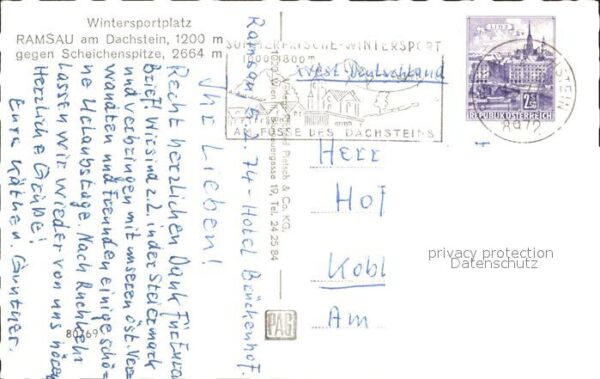 Wintersportplatz
RAMSAU am Dachstein, 1200 m
gegen Scheichenspitze, 2664 m
Ramsau 6.2.74 - Hotel Brückenhof.
Ihr Lieben!
Recht herzlichen Dank für Euren
Brief! Wir sind z.Z. in der Steiermark
und verbringen mit unseren öst. Ver-
wandten und Freunden einige schö-
ne Urlaubstage. Nach Rückkehr
lassen wir wieder von uns hören
Herzliche Grüße!
Eure Käthe u. Günther.
80769
Pietsch & Co. KG.
gasse 19, Tel. 24 25 84
PAG
SOMMERFRISCHE-WINTERSPORT
1000-1800m
AM FUSSE DES DACHSTEINS
8972
LINZ
2.50
REPUBLIK ÖSTERREICH
West-Deutschland
Herr
Hof
Kobl
Am
privacy protection
Datenschutz